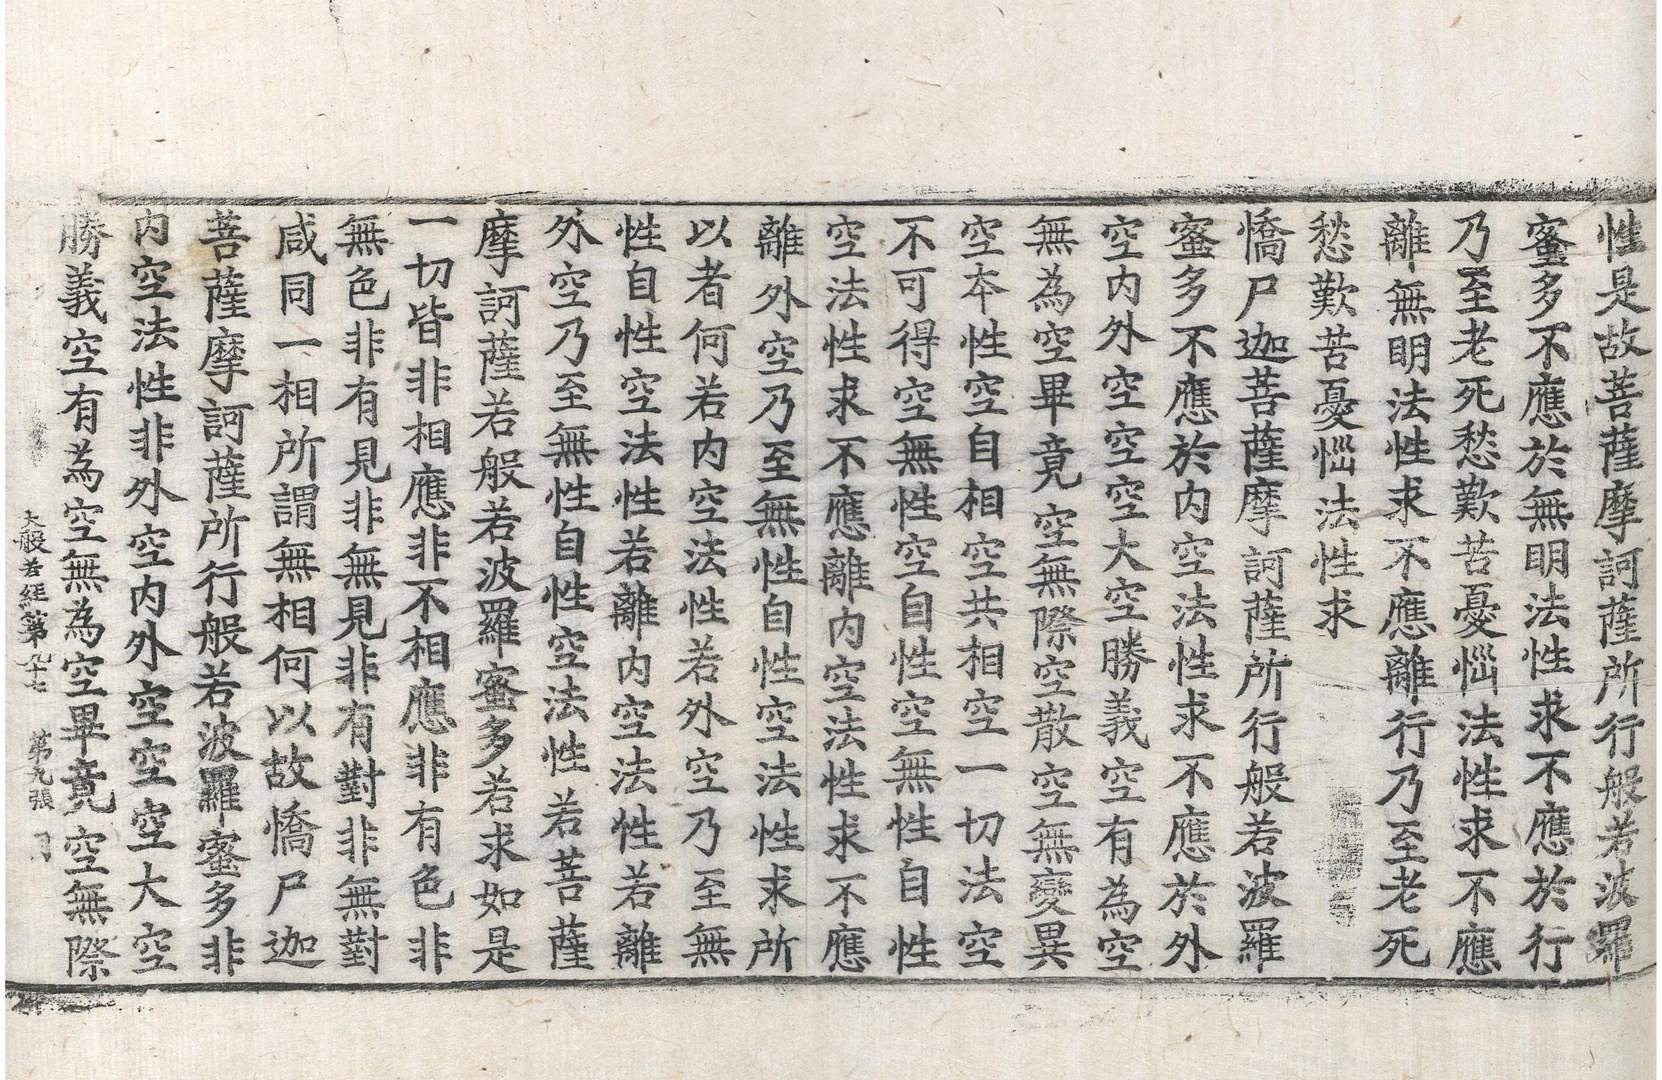 性是故菩薩摩訶薩所行般若波羅
蜜多不應於無明法性求不應於行
乃至老死愁歎苦憂惱法性求不應
離無明法性求不應離行乃至老死
愁歎苦憂惱法性求
憍尸迦菩薩摩訶薩所行般若波羅
蜜多不應於内空法性求不應於外
空内外空空空大空勝義空有為空
無為空畢竟空無際空散空無變異
空夲性空自相空共相空一切法空
不可得空無性空自性空無性自性
空法性求不應離内空法性求不應
離外空乃至無性自性空法性求所
以者何若内空法性若外空乃至無
性自性空法性若離内空法性若離
外空乃至無性自性空法性若菩薩
摩訶薩若般若波羅蜜多若求如是
一切皆非相應非不相應非有色非
無色非有見非無見非有對非無對
咸同一相所謂無相何以故憍尸迦
菩薩摩訶薩所行般若波羅蜜多非
内空法性非外空内外空空空大空
勝義空有為空無為空畢竟空無際
大般若経第九十七 第九張